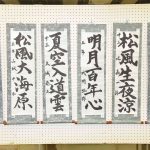 松風生夜涼
明月百年心
夏空入道雲
松風大海原